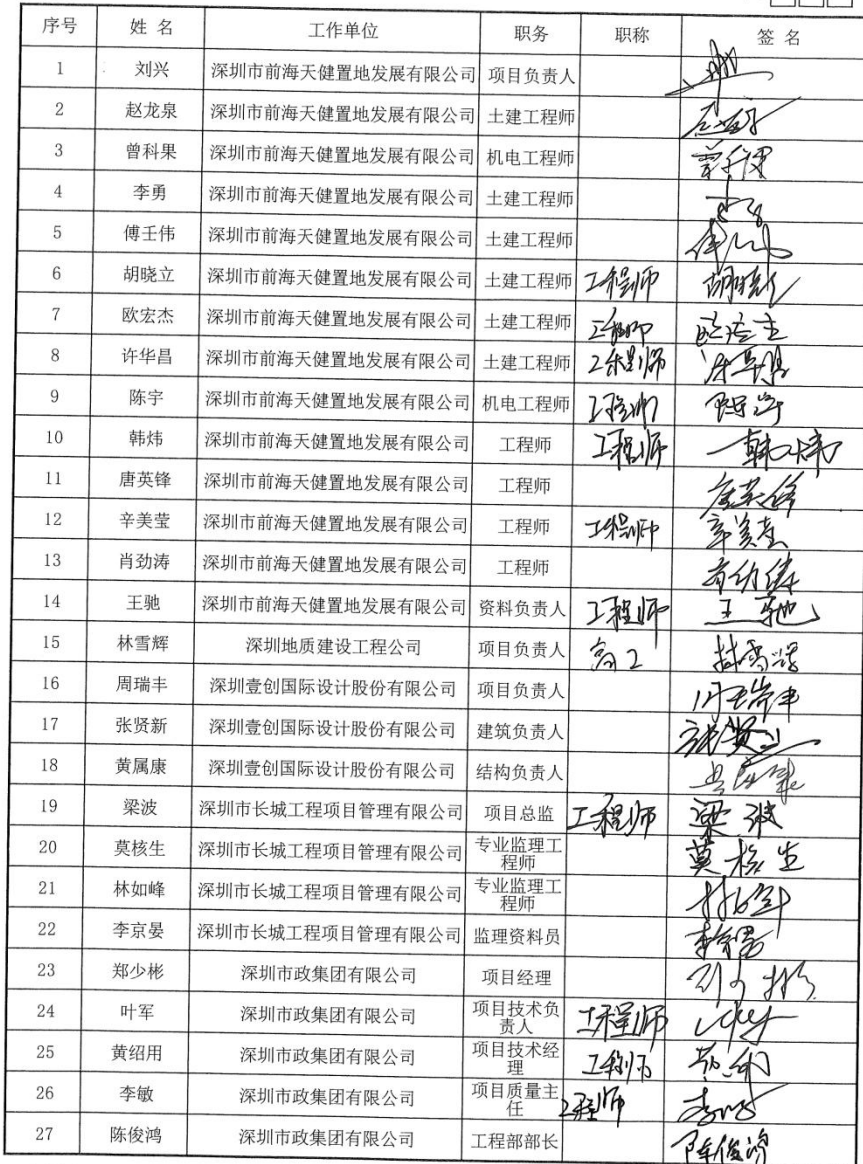 序号 姓 名 工作单位 职务 职称 签 名
1 刘兴 深圳市前海天健置地发展有限公司 项目负责人
2 赵龙泉 深圳市前海天健置地发展有限公司 土建工程师
3 曾科果 深圳市前海天健置地发展有限公司 机电工程师
4 李勇 深圳市前海天健置地发展有限公司 土建工程师
5 傅壬伟 深圳市前海天健置地发展有限公司 土建工程师
6 胡晓立 深圳市前海天健置地发展有限公司 土建工程师 工程师 胡晓立
7 欧宏杰 深圳市前海天健置地发展有限公司 土建工程师 工程师
8 许华昌 深圳市前海天健置地发展有限公司 土建工程师 工程师
9 陈宇 深圳市前海天健置地发展有限公司 机电工程师 工程师 陈宇
10 韩炜 深圳市前海天健置地发展有限公司 工程师 工程师 韩炜
11 唐英锋 深圳市前海天健置地发展有限公司 工程师 唐英锋
12 辛美莹 深圳市前海天健置地发展有限公司 工程师 工程师 辛美莹
13 肖劲涛 深圳市前海天健置地发展有限公司 工程师 肖劲涛
14 王驰 深圳市前海天健置地发展有限公司 资料负责人 工程师 王驰
15 林雪辉 深圳地质建设工程公司 项目负责人 高工 林雪辉
16 周瑞丰 深圳壹创国际设计股份有限公司 项目负责人 周瑞丰
17 张贤新 深圳壹创国际设计股份有限公司 建筑负责人
18 黄属康 深圳壹创国际设计股份有限公司 结构负责人
19 梁波 深圳市长城工程项目管理有限公司 项目总监 工程师 梁波
20 莫核生 深圳市长城工程项目管理有限公司 专业监理工程师 莫核生
21 林如峰 深圳市长城工程项目管理有限公司 专业监理工程师
22 李京晏 深圳市长城工程项目管理有限公司 监理资料员
23 郑少彬 深圳市政集团有限公司 项目经理
24 叶军 深圳市政集团有限公司 项目技术负责人 工程师
25 黄绍用 深圳市政集团有限公司 项目技术经理 工程师
26 李敏 深圳市政集团有限公司 项目质量主任 工程师
27 陈俊鸿 深圳市政集团有限公司 工程部部长 陈俊鸿